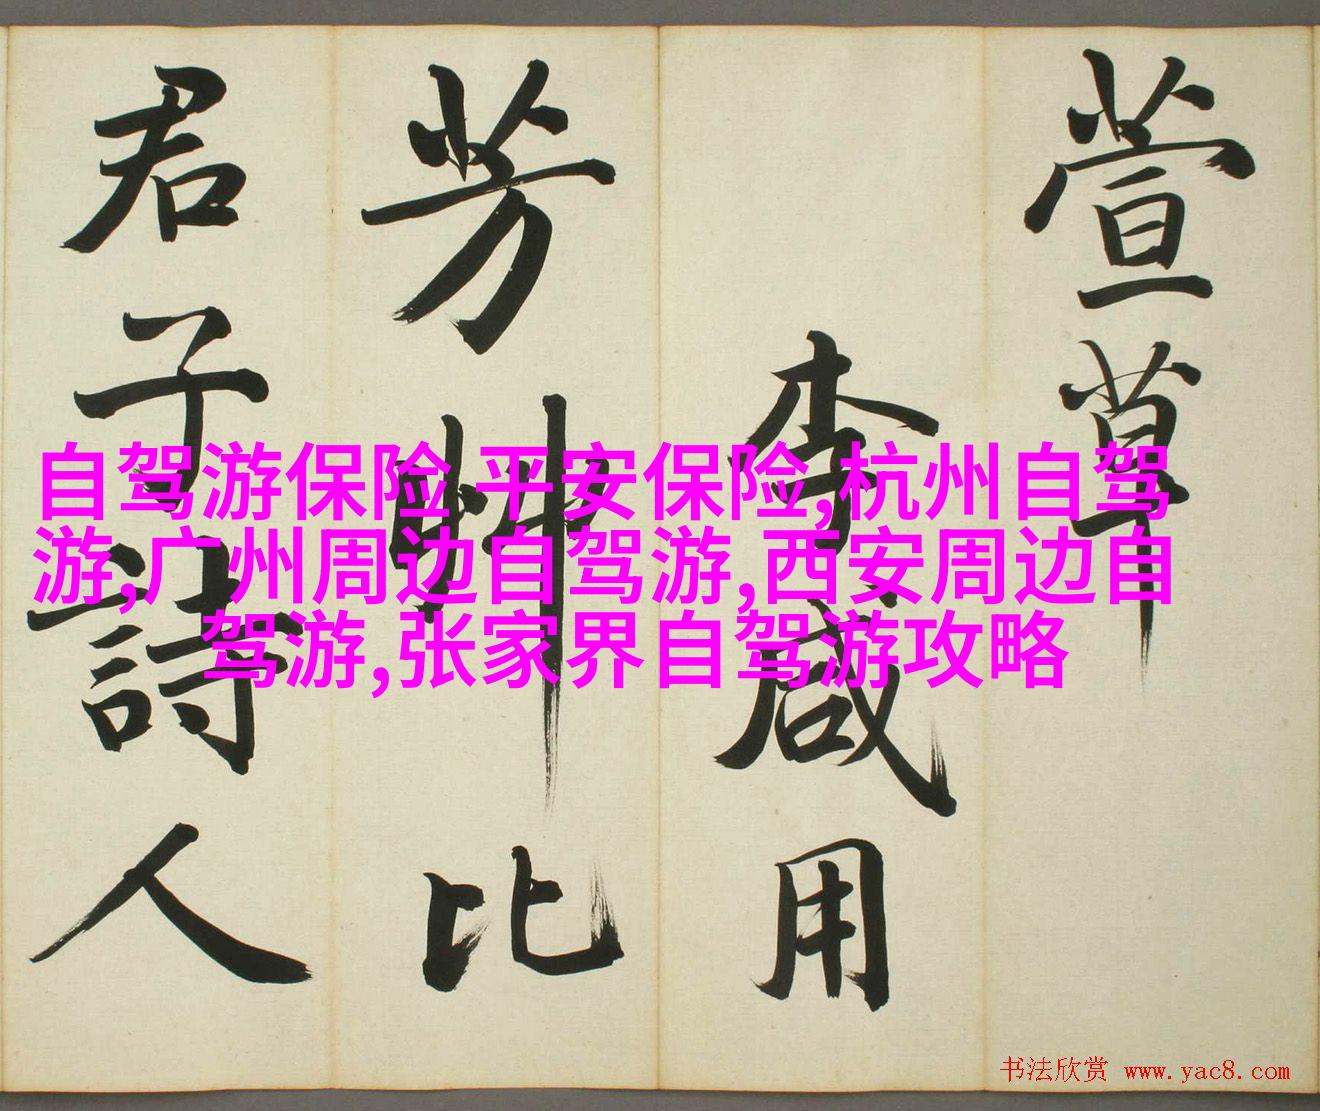 萱草
李咸用
芳艸比
君子詩人
自驾游保险,平安保险,杭州自驾
游,广州周边自驾游,西安周边自
驾游,张家界自驾游攻略
书法欣赏 www.yac8.com